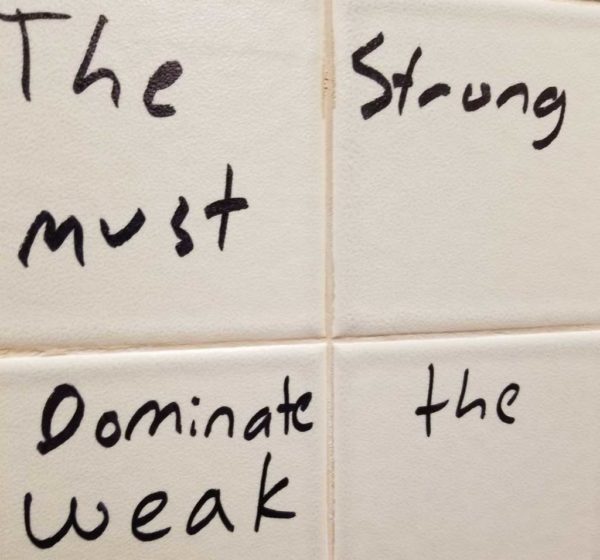 The Strong
must
Dominate the
weak